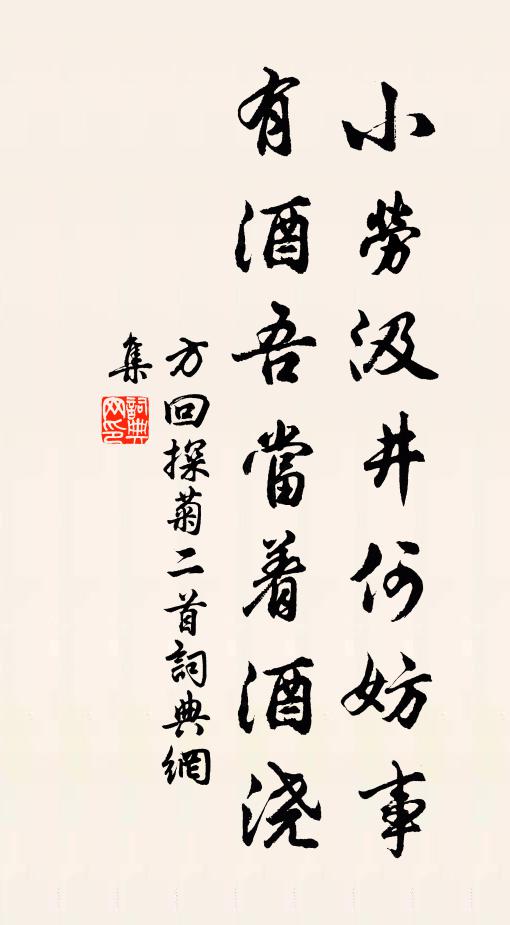 小勞汲井何妨事
有酒吾當着酒浇
方回探菊二首詞典網
集
詞典网印